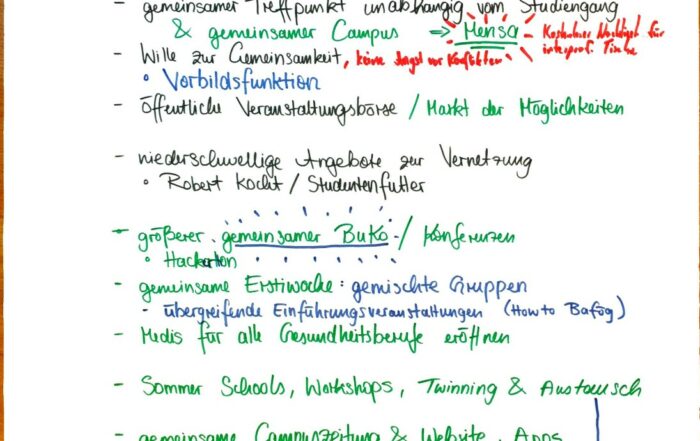 - gemeinsamer Treffpunkt unabhängig vom Studiengang
& gemeinsamer Campus → Mensa - Kostenloser Nachtisch für
interprof. Tische
- Wille zur Gemeinsamkeit, keine Angst vor Konflikten
• Vorbildsfunktion
- öffentliche Veranstaltungsbörse / Markt der Möglichkeiten
- niederschwellige Angebote zur Vernetzung
• Robert kocht / Studentenfutter
- größerer gemeinsamer BuKo / Konferenzen
• Hackarton
- gemeinsame Erstiwoche: gemischte Gruppen
- übergreifende Einführungsveranstaltungen (How to Bafög)
- Medis für alle Gesundheitsberufe eröffnen
- Sommer Schools, Workshops, Twinning & Austausch
- gemeinsame Campuszeitung & Website, Apps